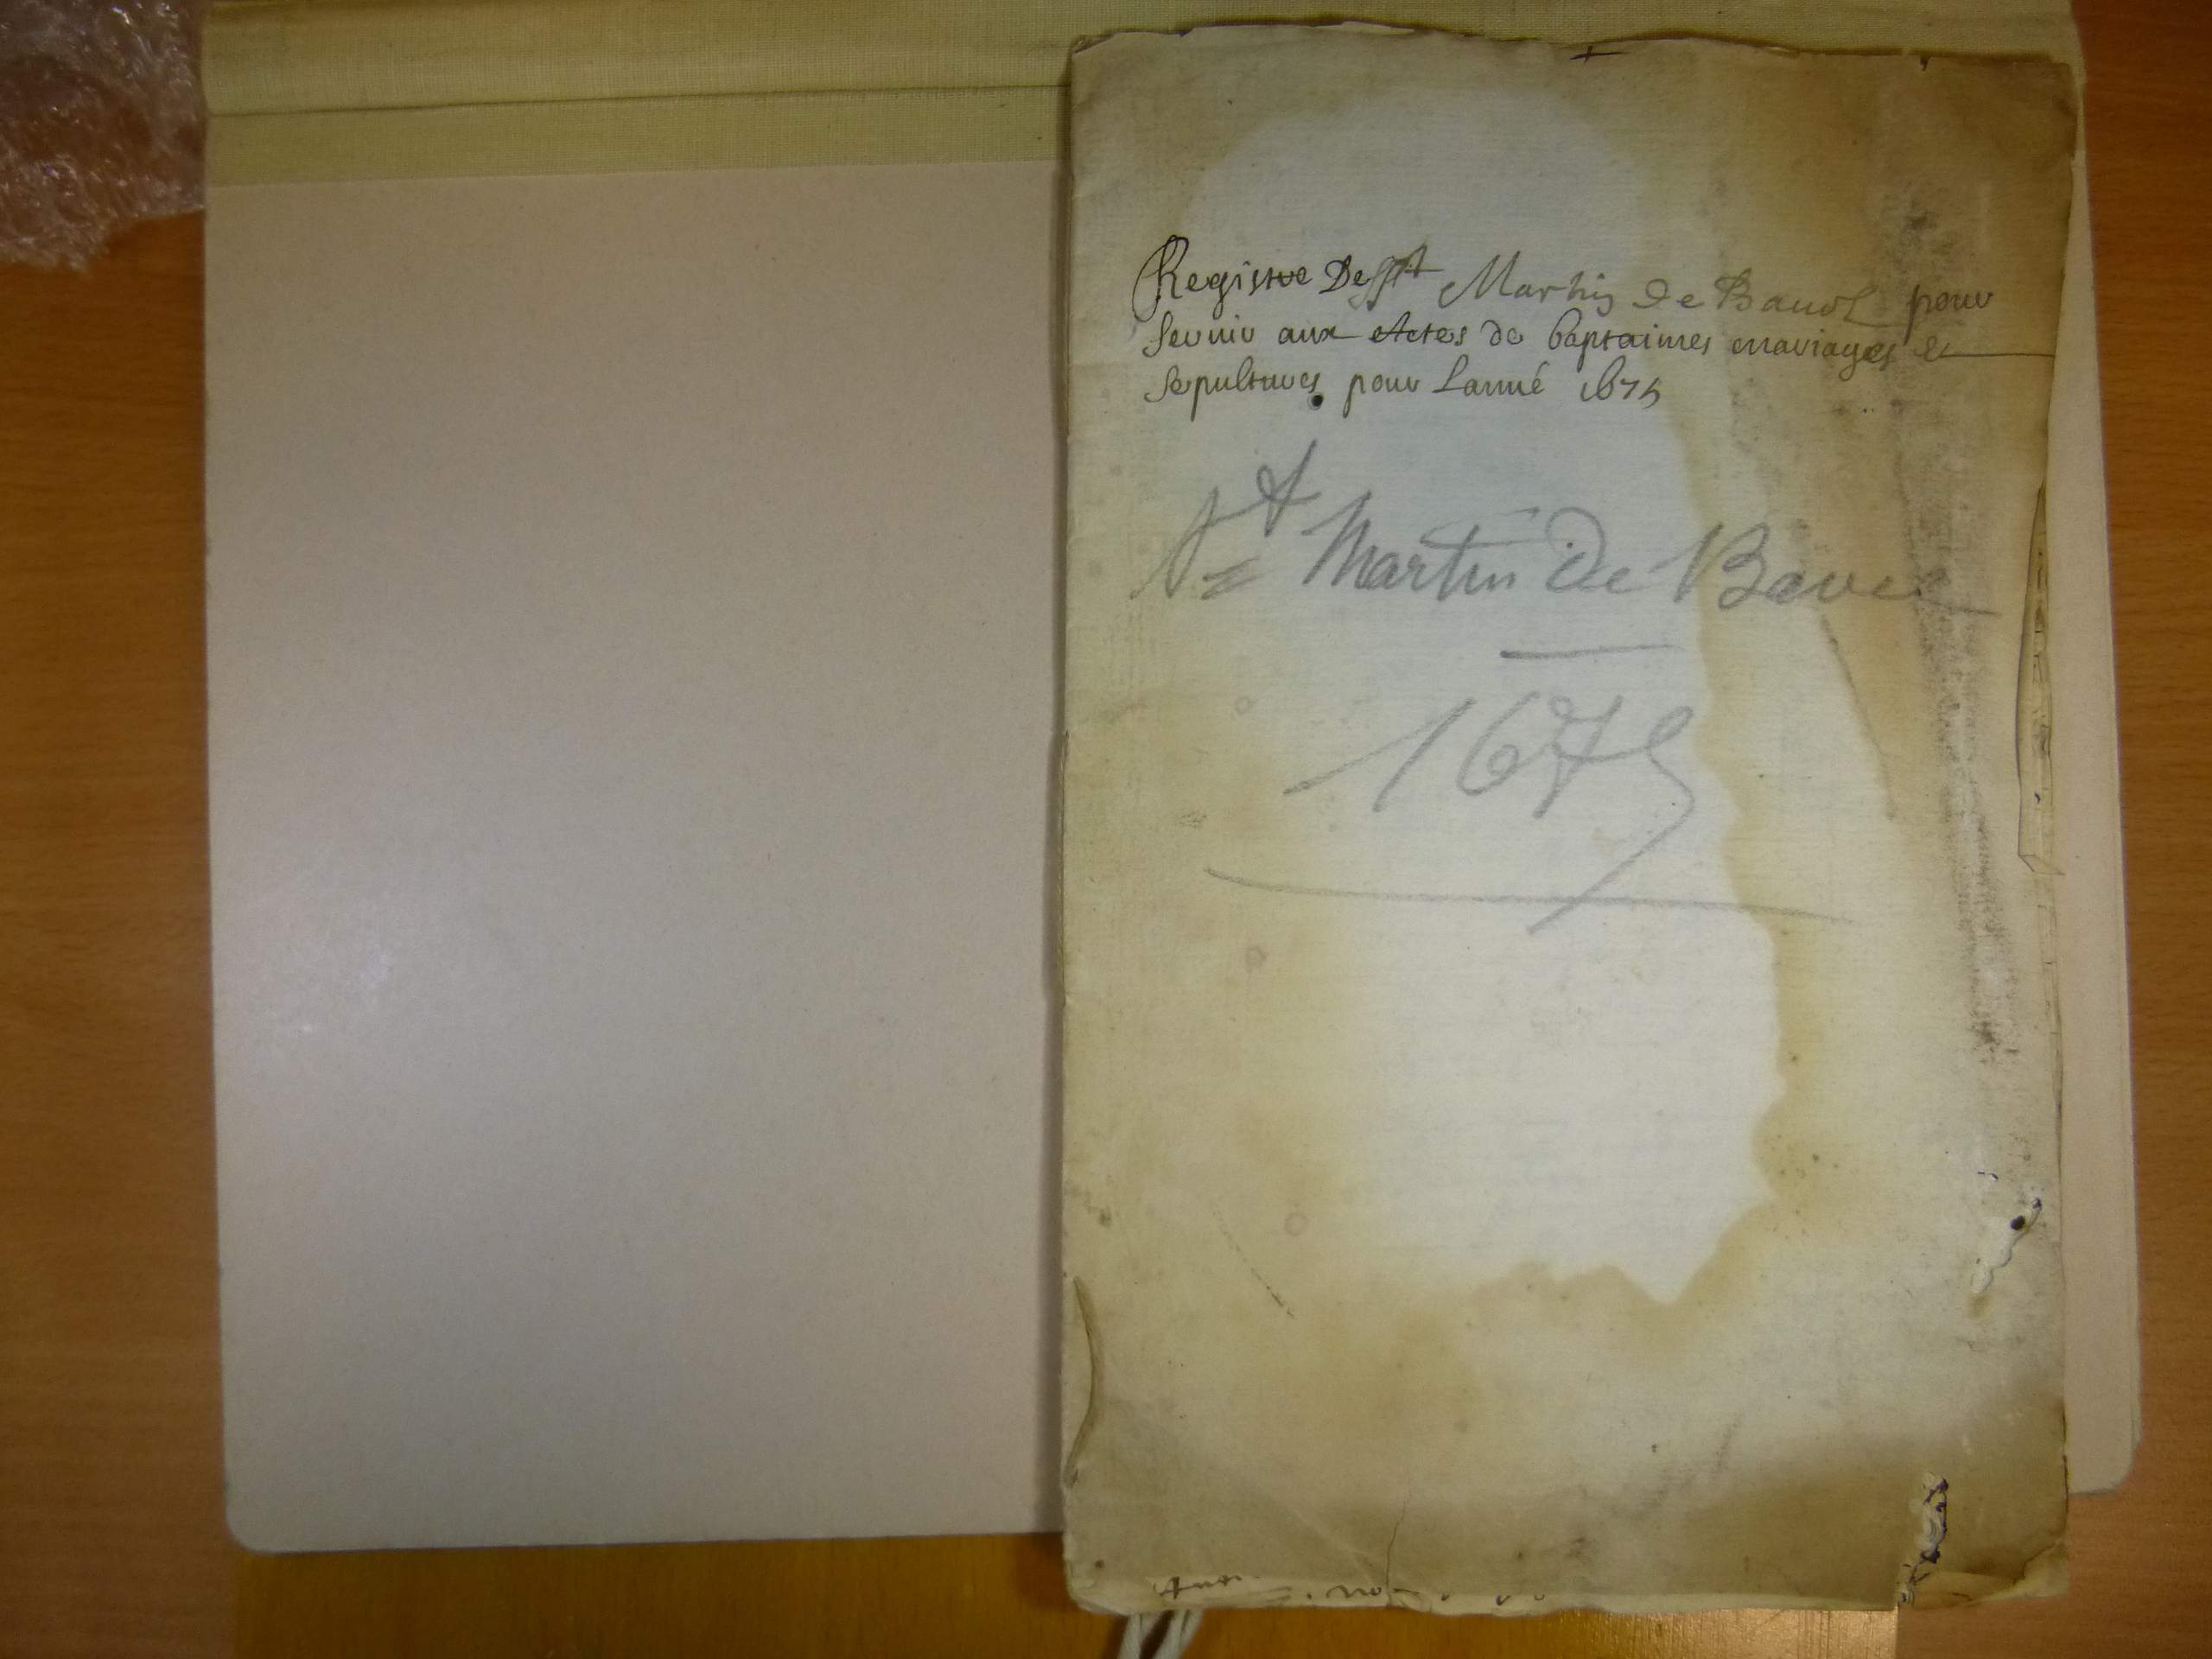 Registre De St Martin de Bavel pour
servir aux Actes de baptaimes mariages et
sepultures pour Lanné 1675
St Martin de Bavel
1675